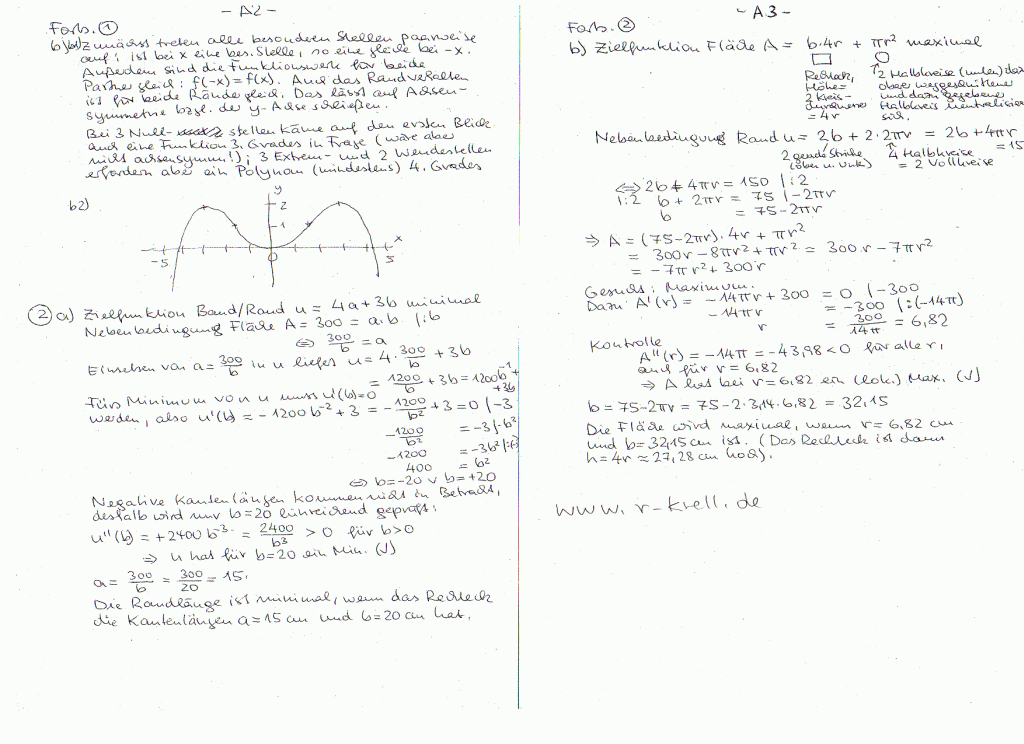 - A2 -
Forts. ①
b) b1) Zunächst treten alle besonderen Stellen paarweise
auf: ist bei x eine bes. Stelle, so eine gleiche bei -x.
Außerdem sind die Funktionswerte für beide
Partner gleich: f(-x) = f(x). Auch das Randverhalten
ist für beide Ränder gleich. Das lässt auf Achsen-
symmetrie bzgl. der y-Achse schließen.
Bei 3 Null- stellen käme auf den ersten Blick
auch eine Funktion 3. Grades in Frage (wäre aber
nicht achsensymm!); 3 Extrem- und 2 Wendestellen
erfordern aber ein Polynom (mindestens) 4. Grades
b2)
y
2
1
x
-5
0
5
② a) Zielfunktion Band/Rand u = 4a + 3b minimal
Nebenbedingung Fläche A = 300 = a·b |:b
⇔ 300/b = a
Einsetzen von a = 300/b in u liefert u = 4·300/b + 3b
= 1200/b + 3b = 1200b⁻¹ + 3b
Fürs Minimum von u muss u'(b) = 0
werden, also u'(b) = -1200b⁻² + 3 = -1200/b² + 3 = 0 |-3
-1200/b² = -3 |·b²
-1200 = -3b² |:(-3)
400 = b²
⇔ b = -20 ∨ b = +20
Negative Kantenlängen kommen nicht in Betracht,
deshalb wird nur b = 20 hinreichend geprüft:
u''(b) = +2400b⁻³ = 2400/b³ > 0 für b > 0
⇒ u hat für b = 20 ein Min. (√)
a = 300/b = 300/20 = 15.
Die Randlänge ist minimal, wenn das Rechteck
die Kantenlängen a = 15 cm und b = 20 cm hat.
- A3 -
Forts. ②
b) Zielfunktion Fläche A = b·4r + πr² maximal
Rechteck, Höhe = 2 Kreis- durchmesser = 4r
2 Halbkreise (unten) da
oben weggeschnittene
und dazu gegebene
Halbkreis neutralisieren
sich.
Nebenbedingung Rand u = 2b + 2·2πr = 2b + 4πr
= 15
2 gerade Striche (oben u. unten)
4 Halbkreise = 2 Vollkreise
⇔ 2b + 4πr = 150 |:2
:2 b + 2πr = 75 |-2πr
b = 75 - 2πr
⇒ A = (75 - 2πr)·4r + πr²
= 300r - 8πr² + πr² = 300r - 7πr²
= -7πr² + 300r
Gesucht: Maximum.
Dazu A'(r) = -14πr + 300 = 0 |-300
-14πr = -300 |:(-14π)
r = 300/14π = 6,82
Kontrolle
A''(r) = -14π = -43,98 < 0 für alle r,
auch für r = 6,82
⇒ A hat bei r = 6,82 ein (lok.) Max. (√)
b = 75 - 2πr = 75 - 2·3,14·6,82 = 32,15
Die Fläche wird maximal, wenn r = 6,82 cm
und b = 32,15 cm ist. (Das Rechteck ist dann
h = 4r ≈ 27,28 cm hoch).
www.r-krell.de